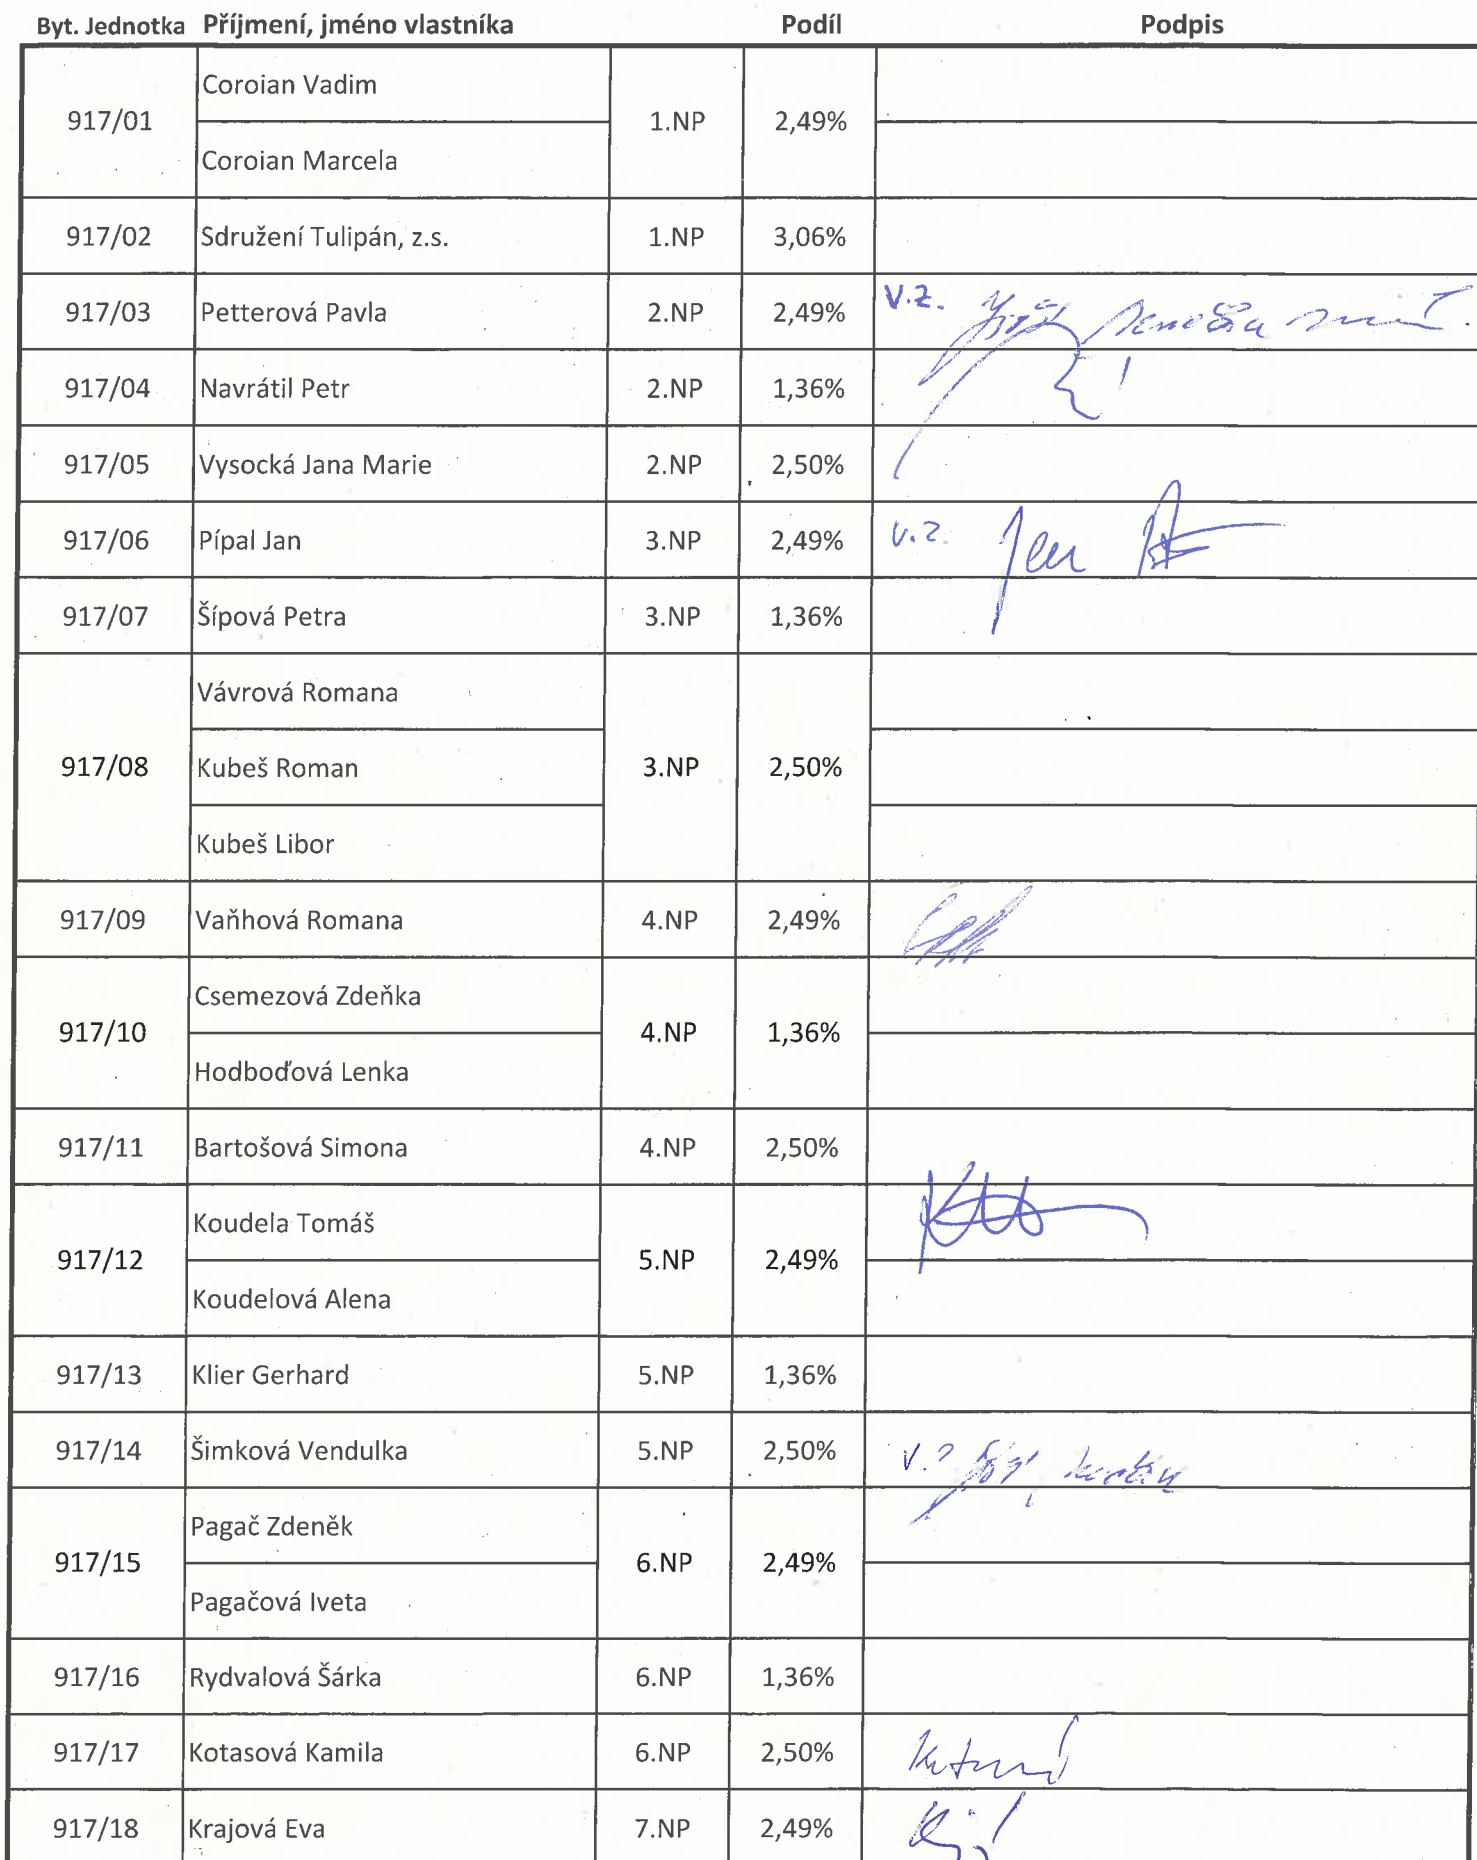 Byt. Jednotka Příjmení, jméno vlastníka Podíl Podpis
917/01 Coroian Vadim 1.NP 2,49%
Coroian Marcela
917/02 Sdružení Tulipán, z.s. 1.NP 3,06%
917/03 Petterová Pavla 2.NP 2,49% v.z.
917/04 Navrátil Petr 2.NP 1,36%
917/05 Vysocká Jana Marie 2.NP 2,50%
917/06 Pípal Jan 3.NP 2,49% v.z. Jan
917/07 Šípová Petra 3.NP 1,36%
Vávrová Romana
917/08 Kubeš Roman 3.NP 2,50%
Kubeš Libor
917/09 Vaňhová Romana 4.NP 2,49%
917/10 Csemezová Zdeňka 4.NP 1,36%
Hodboďová Lenka
917/11 Bartošová Simona 4.NP 2,50%
917/12 Koudela Tomáš 5.NP 2,49%
Koudelová Alena
917/13 Klier Gerhard 5.NP 1,36%
917/14 Šimková Vendulka 5.NP 2,50%
917/15 Pagač Zdeněk 6.NP 2,49%
Pagačová Iveta
917/16 Rydvalová Šárka 6.NP 1,36%
917/17 Kotasová Kamila 6.NP 2,50%
917/18 Krajová Eva 7.NP 2,49%